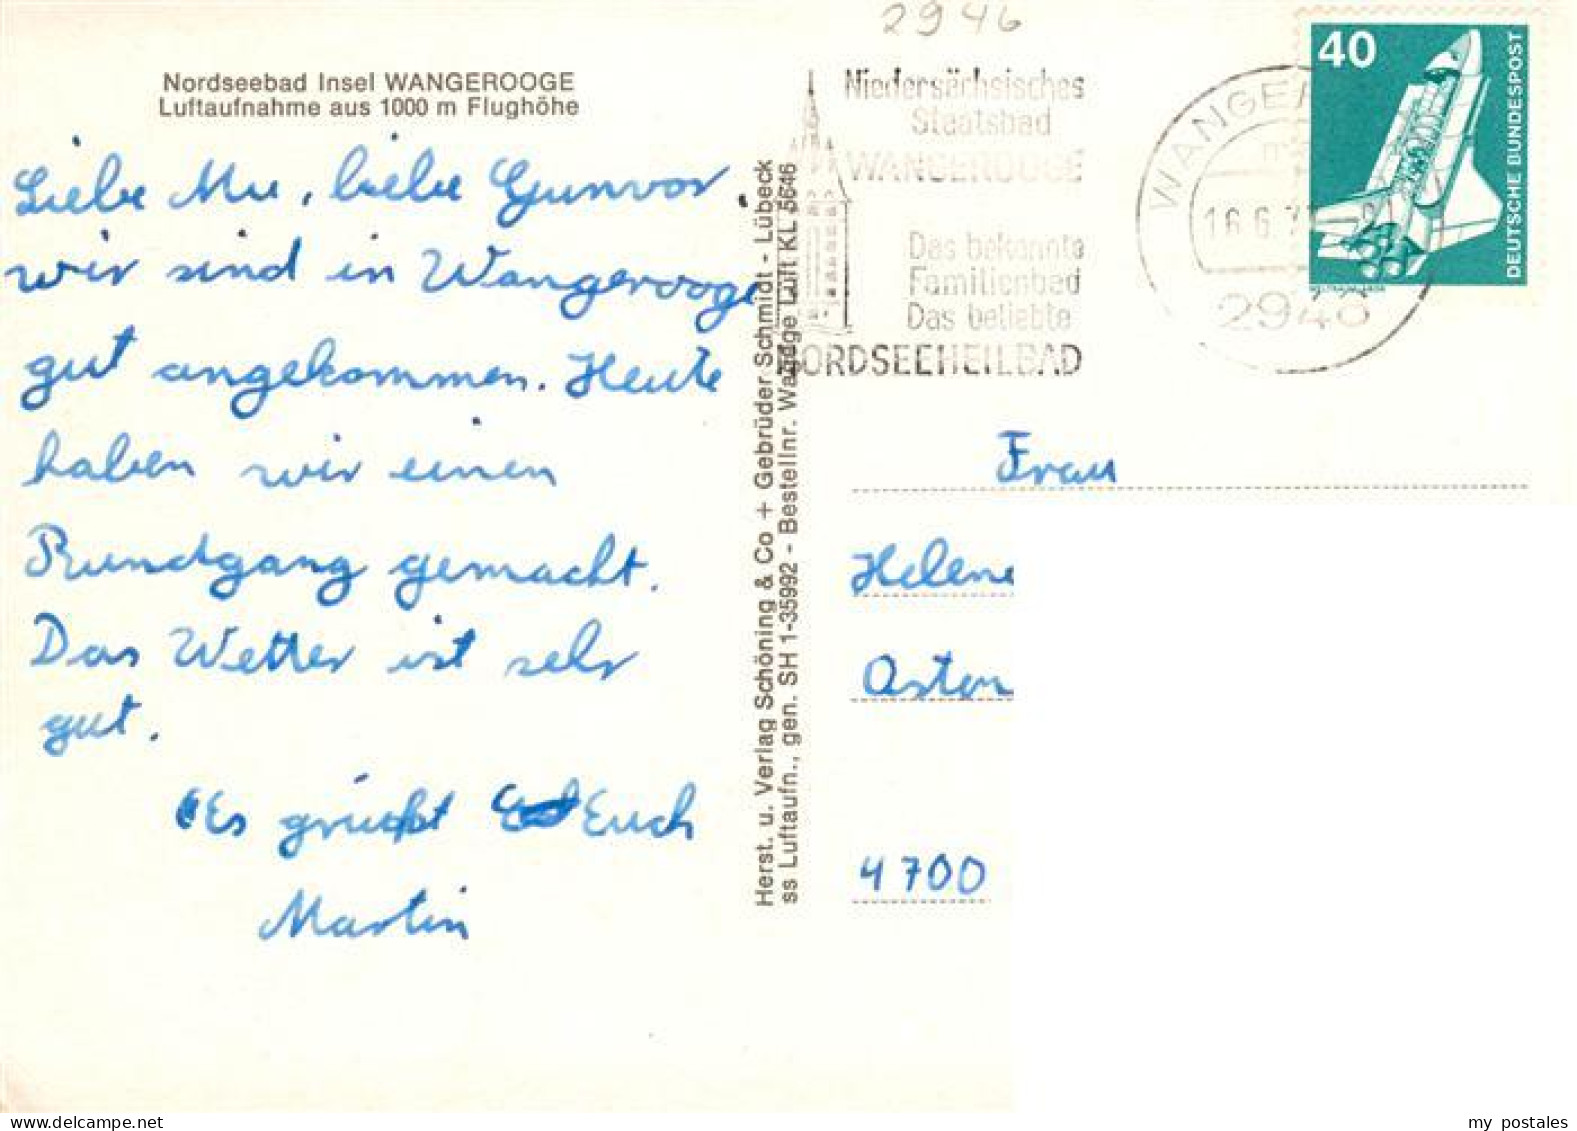 2946
Nordseebad Insel WANGEROOGE
Luftaufnahme aus 1000 m Flughöhe
Liebe Mu, liebe Gunvor,
wir sind in Wangerooge
gut angekommen. Heute
haben wir einen
Rundgang gemacht.
Das Wetter ist sehr
gut.
Es grüßt Euch
Martin
Herst. u. Verlag Schöning & Co + Gebrüder Schmidt - Lübeck
ss Luftaufn., gen. SH 1-35992 - Bestellnr. Wange Luft KL 5646
Niedersächsisches
Staatsbad
WANGEROOGE
Das bekannte
Familienbad
Das beliebte
NORDSEEHEILBAD
WANGE
16.6.7
2946
40
DEUTSCHE BUNDESPOST
Frau
Helene
4700
my postales